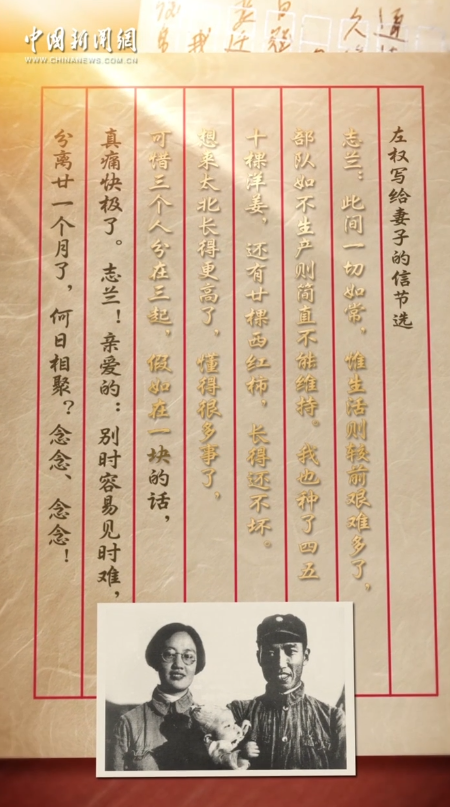 中国新闻網
WWW.CHINANEWS.COM.CN
左权写给妻子的信节选
志兰：此间一切如常，惟生活则较前艰难多了，
部队如不生产则简直不能维持。我也种了四五
十棵洋姜，还有廿棵西红柿，长得还不坏。
想来太北长得更高了，懂得很多事了，
可惜三个人分在三起，假如在一块的话，
真痛快极了。志兰！亲爱的：别时容易见时难，
分离廿一个月了，何日相聚？念念、念念！